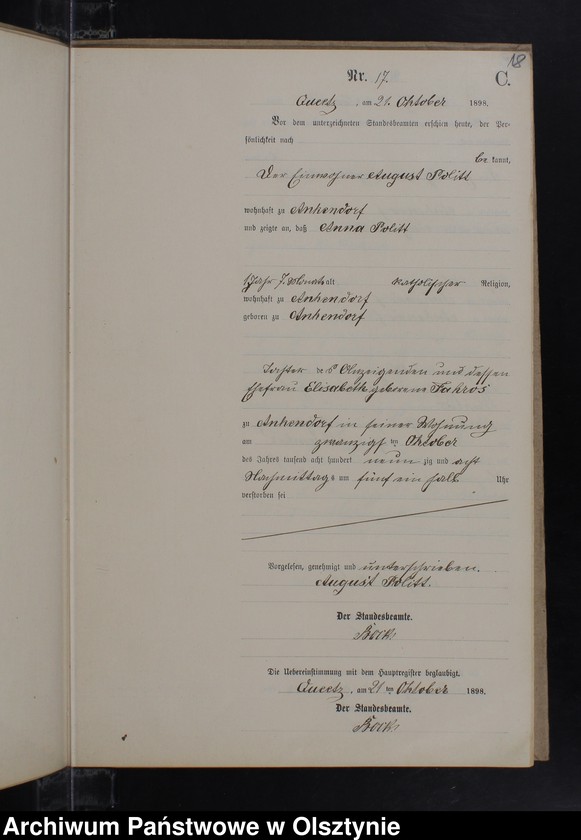 18
Nr. 17. C.
Queetz, am 21. Oktober 1898.
Vor dem unterzeichneten Standesbeamten erschien heute, der Per-
sönlichkeit nach
be kannt,
Der Einwohner August Politt
wohnhaft zu Ankendorf
und zeigte an, daß Anna Politt
1 Jahr 7 Monate alt katholischer Religion,
wohnhaft zu Ankendorf
geboren zu Ankendorf
Tochter des Anzeigenden und dessen
Ehefrau Elisabeth geborene
zu Ankendorf in seiner Wohnung
am zwanzigsten Oktober
des Jahres tausend acht hundert neun zig und acht
Nachmittags um fünf ein halb Uhr
verstorben sei
Vorgelesen, genehmigt und unterschrieben.
August Politt.
Der Standesbeamte.
Bock
Die Uebereinstimmung mit dem Hauptregister beglaubigt.
Queetz, am 21 ten Oktober 1898.
Der Standesbeamte.
Bock
Archiwum Państwowe w Olsztynie